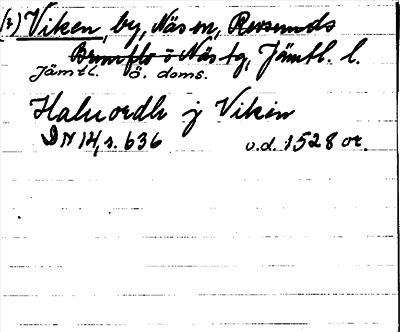 (2) Viken, by, Näs sn, Revsunds
Brunflo o Näs tg, Jämtl. l.
Jämtl. ö. doms.
Haluordh j Viken
DN 14, s. 636 v.d. 1528 or.